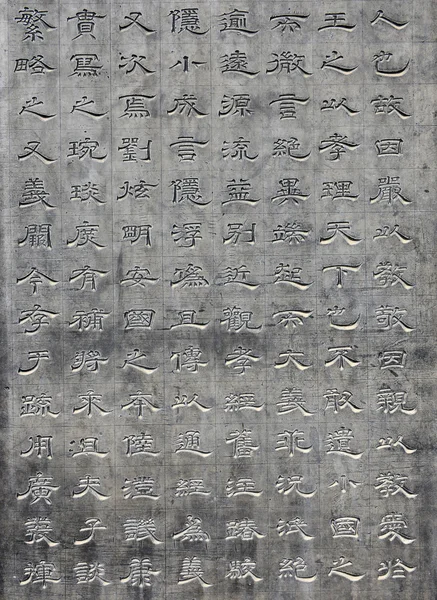 人也故因嚴以教敬因親以教愛於
王之以孝理天下也不敢遺小國之
而微言絕異端起而大義乖況泯絕
逾遠源流益別近觀孝經舊注踳駮
隱小成言隱浮偽且傳以通經為義
又次焉劉炫明安國之本陸澄譏康
貴寫之琬琰庶有補將來且夫子談
繁略之又義闕今存于疏用廣發揮